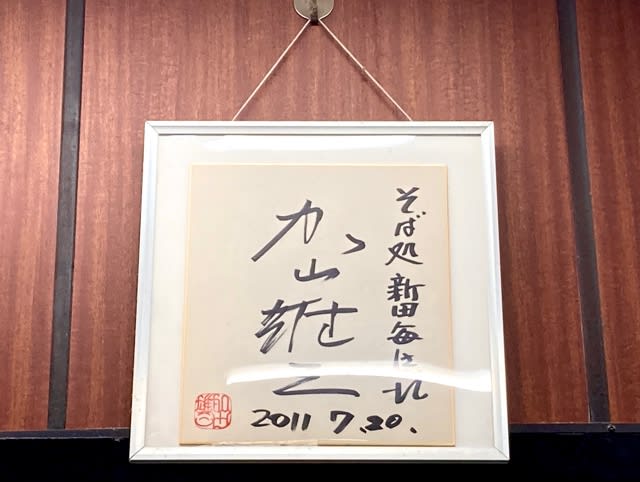 そば処 新田毎
加山雄三
2011 7.20.